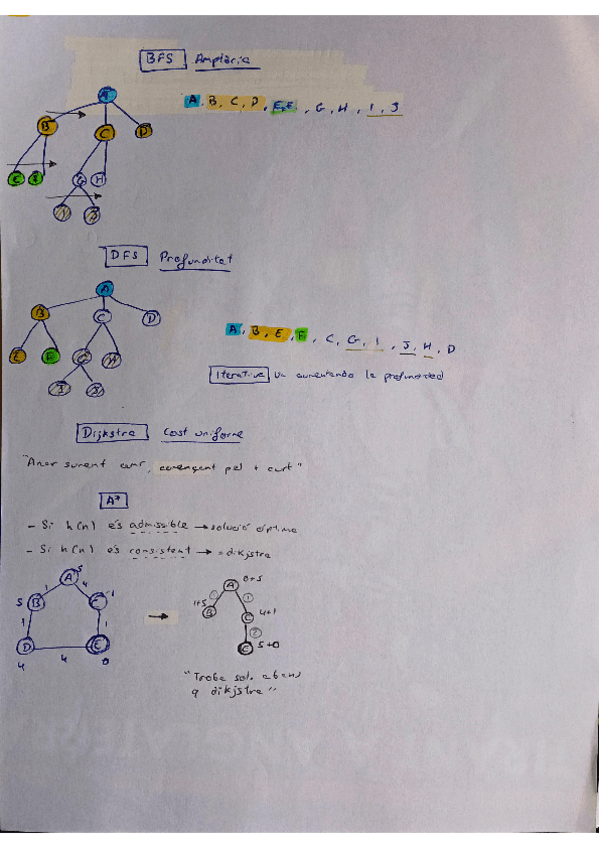 BFS Amplària
A
A, B, C, D, E, F, G, H, I, J
B C D
E F G H
DFS Profunditat
A
B C D
A, B, E, F, C, G, I, J, H, D
E F G H
Iterative va aumentando la profundidad
I J
Dijkstra Cost uniforme
"Anar sumant camí, començant pel + curt"
A*
- Si h(n) és admissible → solució òptima
- Si h(n) és consistent → = dikjstra
A 5 A 0+5
1 4
5 B C 1 → 1+5 B C 4+1
1 1 2
D E E 5+0
4 4 0
"Troba sol. abans
q dikjstra"